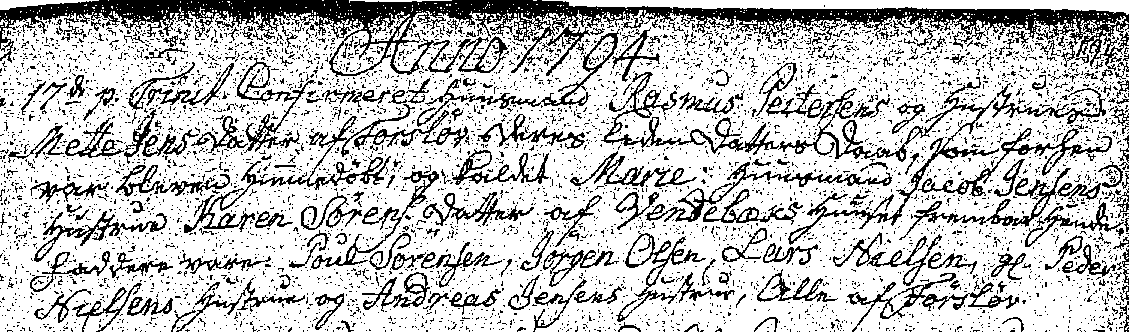 Anno 1794
17de p. Trinit. Confirmeret Huusmand Rasmus Peitersens og Hustrues
Mette Jens Datter af Førsløv deres liden Datters Daab, som forhen
var bleven hiemmedöbt, og kaldet Marie. Huusmand Jacob Jensens
Hustrue Karen Sörens Datter af Vendebæks Huuset frembar hende.
Faddere vare: Poul Sörensen, Jörgen Olsen, Lars Nielsen, gl. Peder
Nielsens Hustrue og Andreas Jensens Hustrue, Alle af Førsløv.